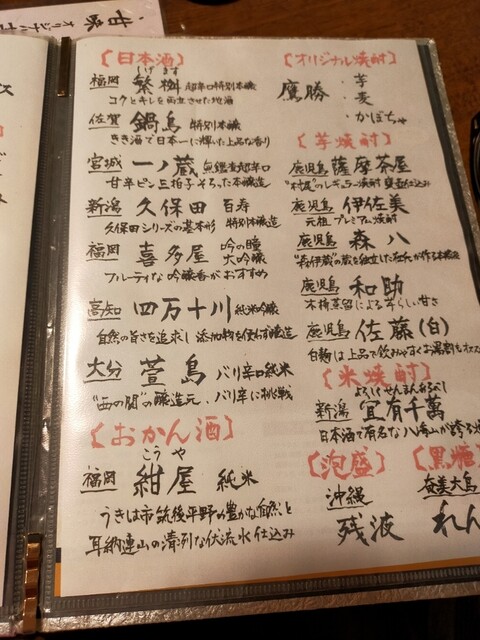 【日本酒】
しげます
福岡 繁桝 超辛口特別本醸
コクとキレを両立させた地酒
佐賀 鍋島 特別本醸
きき酒で日本一に輝いた上品な香り
宮城 一ノ蔵 無鑑査超辛口
甘辛ピン三拍子そろった本醸造
新潟 久保田 百寿
久保田シリーズの基本形 特別本醸造
福岡 喜多屋 吟の瞳
大吟醸
フルーティな吟醸香がおすすめ
高知 四万十川 純米吟醸
自然の旨さを追求し 添加物を使わず醸造
大分 萱島 バリ辛口純米
"西の関"の醸造元、バリ辛に挑戦
【おかん酒】
こうや
福岡 紺屋 純米
うきは市筑後平野の豊かな自然と
耳納連山の清列な伏流水仕込み
【オリジナル焼酎】
鷹勝 ・芋
・麦
・かぼちゃ
【芋焼酎】
鹿児島 薩摩茶屋
"村尾"のレギュラー焼酎 甕壺仕込み
鹿児島 伊佐美
元祖プレミアム焼酎
鹿児島 森八
"森伊蔵"の蔵を独立した杜氏が作る本格
鹿児島 和助
木桶蒸留による芋らしい甘さ
鹿児島 佐藤(白)
白麹は上品で飲みやすくお湯割もオス
【米焼酎】
よろしくせんまんあるべし
新潟 宜有千萬
日本酒で有名な八海山が誇る
【泡盛】
沖縄
残波
【黒糖
奄美大島
れん